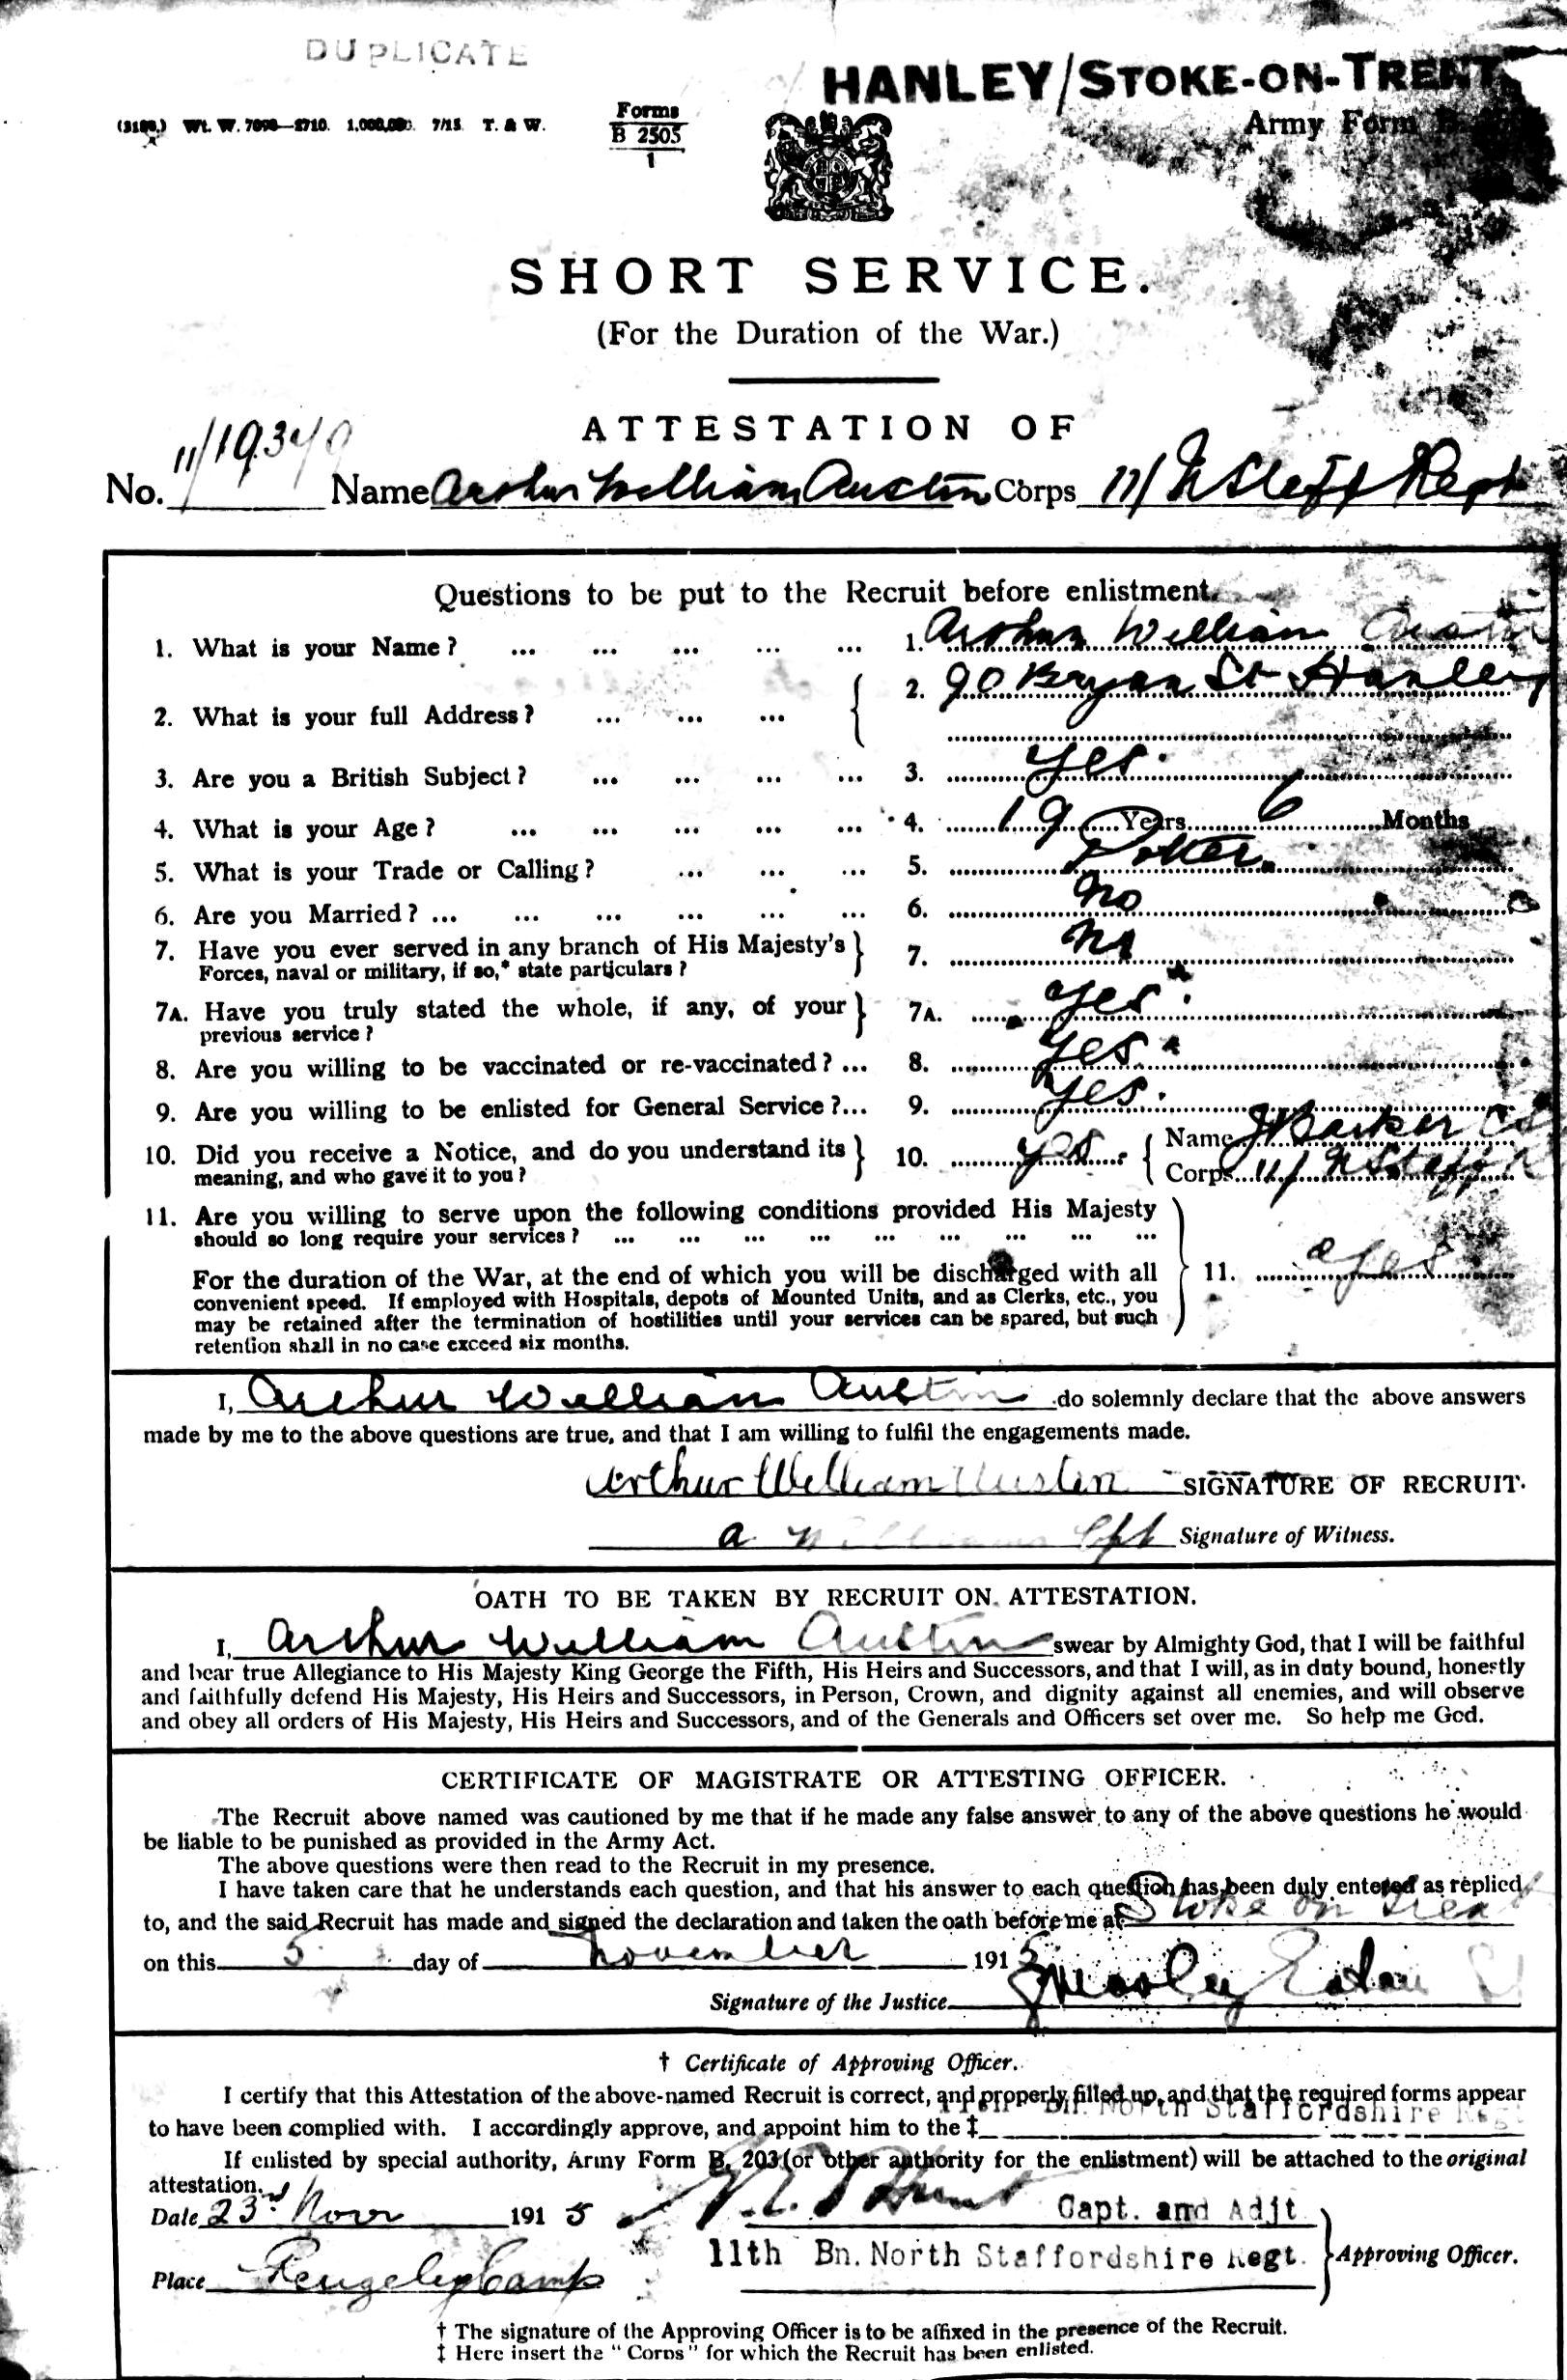 DUPLICATE
HANLEY/STOKE-ON-TRENT
Wt. W. 1,000,000. 7/15. T. & W.
Forms
B 2505
1
Army Form
SHORT SERVICE.
(For the Duration of the War.)
ATTESTATION OF
No. 11/19349 Name Arthur William Austin Corps 11/ N Staff Regt
Questions to be put to the Recruit before enlistment.
1. What is your Name? ... ... ... ... ... 1. Arthur William Austin
2. What is your full Address? ... ... ... 2. 90 Bryan St Hanley
3. Are you a British Subject? ... ... ... ... 3. Yes.
4. What is your Age? ... ... ... ... ... 4. 19 Years 6 Months
5. What is your Trade or Calling? ... ... ... 5. Potter.
6. Are you Married? ... ... ... ... ... ... 6. No
7. Have you ever served in any branch of His Majesty's 7. No
Forces, naval or military, if so,* state particulars?
7A. Have you truly stated the whole, if any, of your 7A. Yes.
previous service?
8. Are you willing to be vaccinated or re-vaccinated? ... 8. Yes.
9. Are you willing to be enlisted for General Service?... 9. Yes.
10. Did you receive a Notice, and do you understand its 10. yes. Name J Barker
meaning, and who gave it to you? Corps 11/ N Staff R
11. Are you willing to serve upon the following conditions provided His Majesty
should so long require your services? ... ... ... ... ... ... ... ... ...
For the duration of the War, at the end of which you will be discharged with all 11. Yes
convenient speed. If employed with Hospitals, depots of Mounted Units, and as Clerks, etc., you
may be retained after the termination of hostilities until your services can be spared, but such
retention shall in no case exceed six months.
I, Arthur William Austin do solemnly declare that the above answers
made by me to the above questions are true, and that I am willing to fulfil the engagements made.
Arthur William Austin SIGNATURE OF RECRUIT.
A Williams Signature of Witness.
OATH TO BE TAKEN BY RECRUIT ON ATTESTATION.
I, Arthur William Austin swear by Almighty God, that I will be faithful
and bear true Allegiance to His Majesty King George the Fifth, His Heirs and Successors, and that I will, as in duty bound, honestly
and faithfully defend His Majesty, His Heirs and Successors, in Person, Crown, and dignity against all enemies, and will observe
and obey all orders of His Majesty, His Heirs and Successors, and of the Generals and Officers set over me. So help me God.
CERTIFICATE OF MAGISTRATE OR ATTESTING OFFICER.
The Recruit above named was cautioned by me that if he made any false answer to any of the above questions he would
be liable to be punished as provided in the Army Act.
The above questions were then read to the Recruit in my presence.
I have taken care that he understands each question, and that his answer to each question has been duly entered as replied
to, and the said Recruit has made and signed the declaration and taken the oath before me at Stoke on Trent
on this 5 day of November 1915
Signature of the Justice
† Certificate of Approving Officer.
I certify that this Attestation of the above-named Recruit is correct, and properly filled up, and that the required forms appear
to have been complied with. I accordingly approve, and appoint him to the ‡ Bn. North Staffordshire Regt
If enlisted by special authority, Army Form B. 203 (or other authority for the enlistment) will be attached to the original
attestation.
Date 23rd Novr 1915 Capt. and Adjt.
11th Bn. North Staffordshire Regt. Approving Officer.
Place Rengeley Camp
† The signature of the Approving Officer is to be affixed in the presence of the Recruit.
‡ Here insert the "Corps" for which the Recruit has been enlisted.